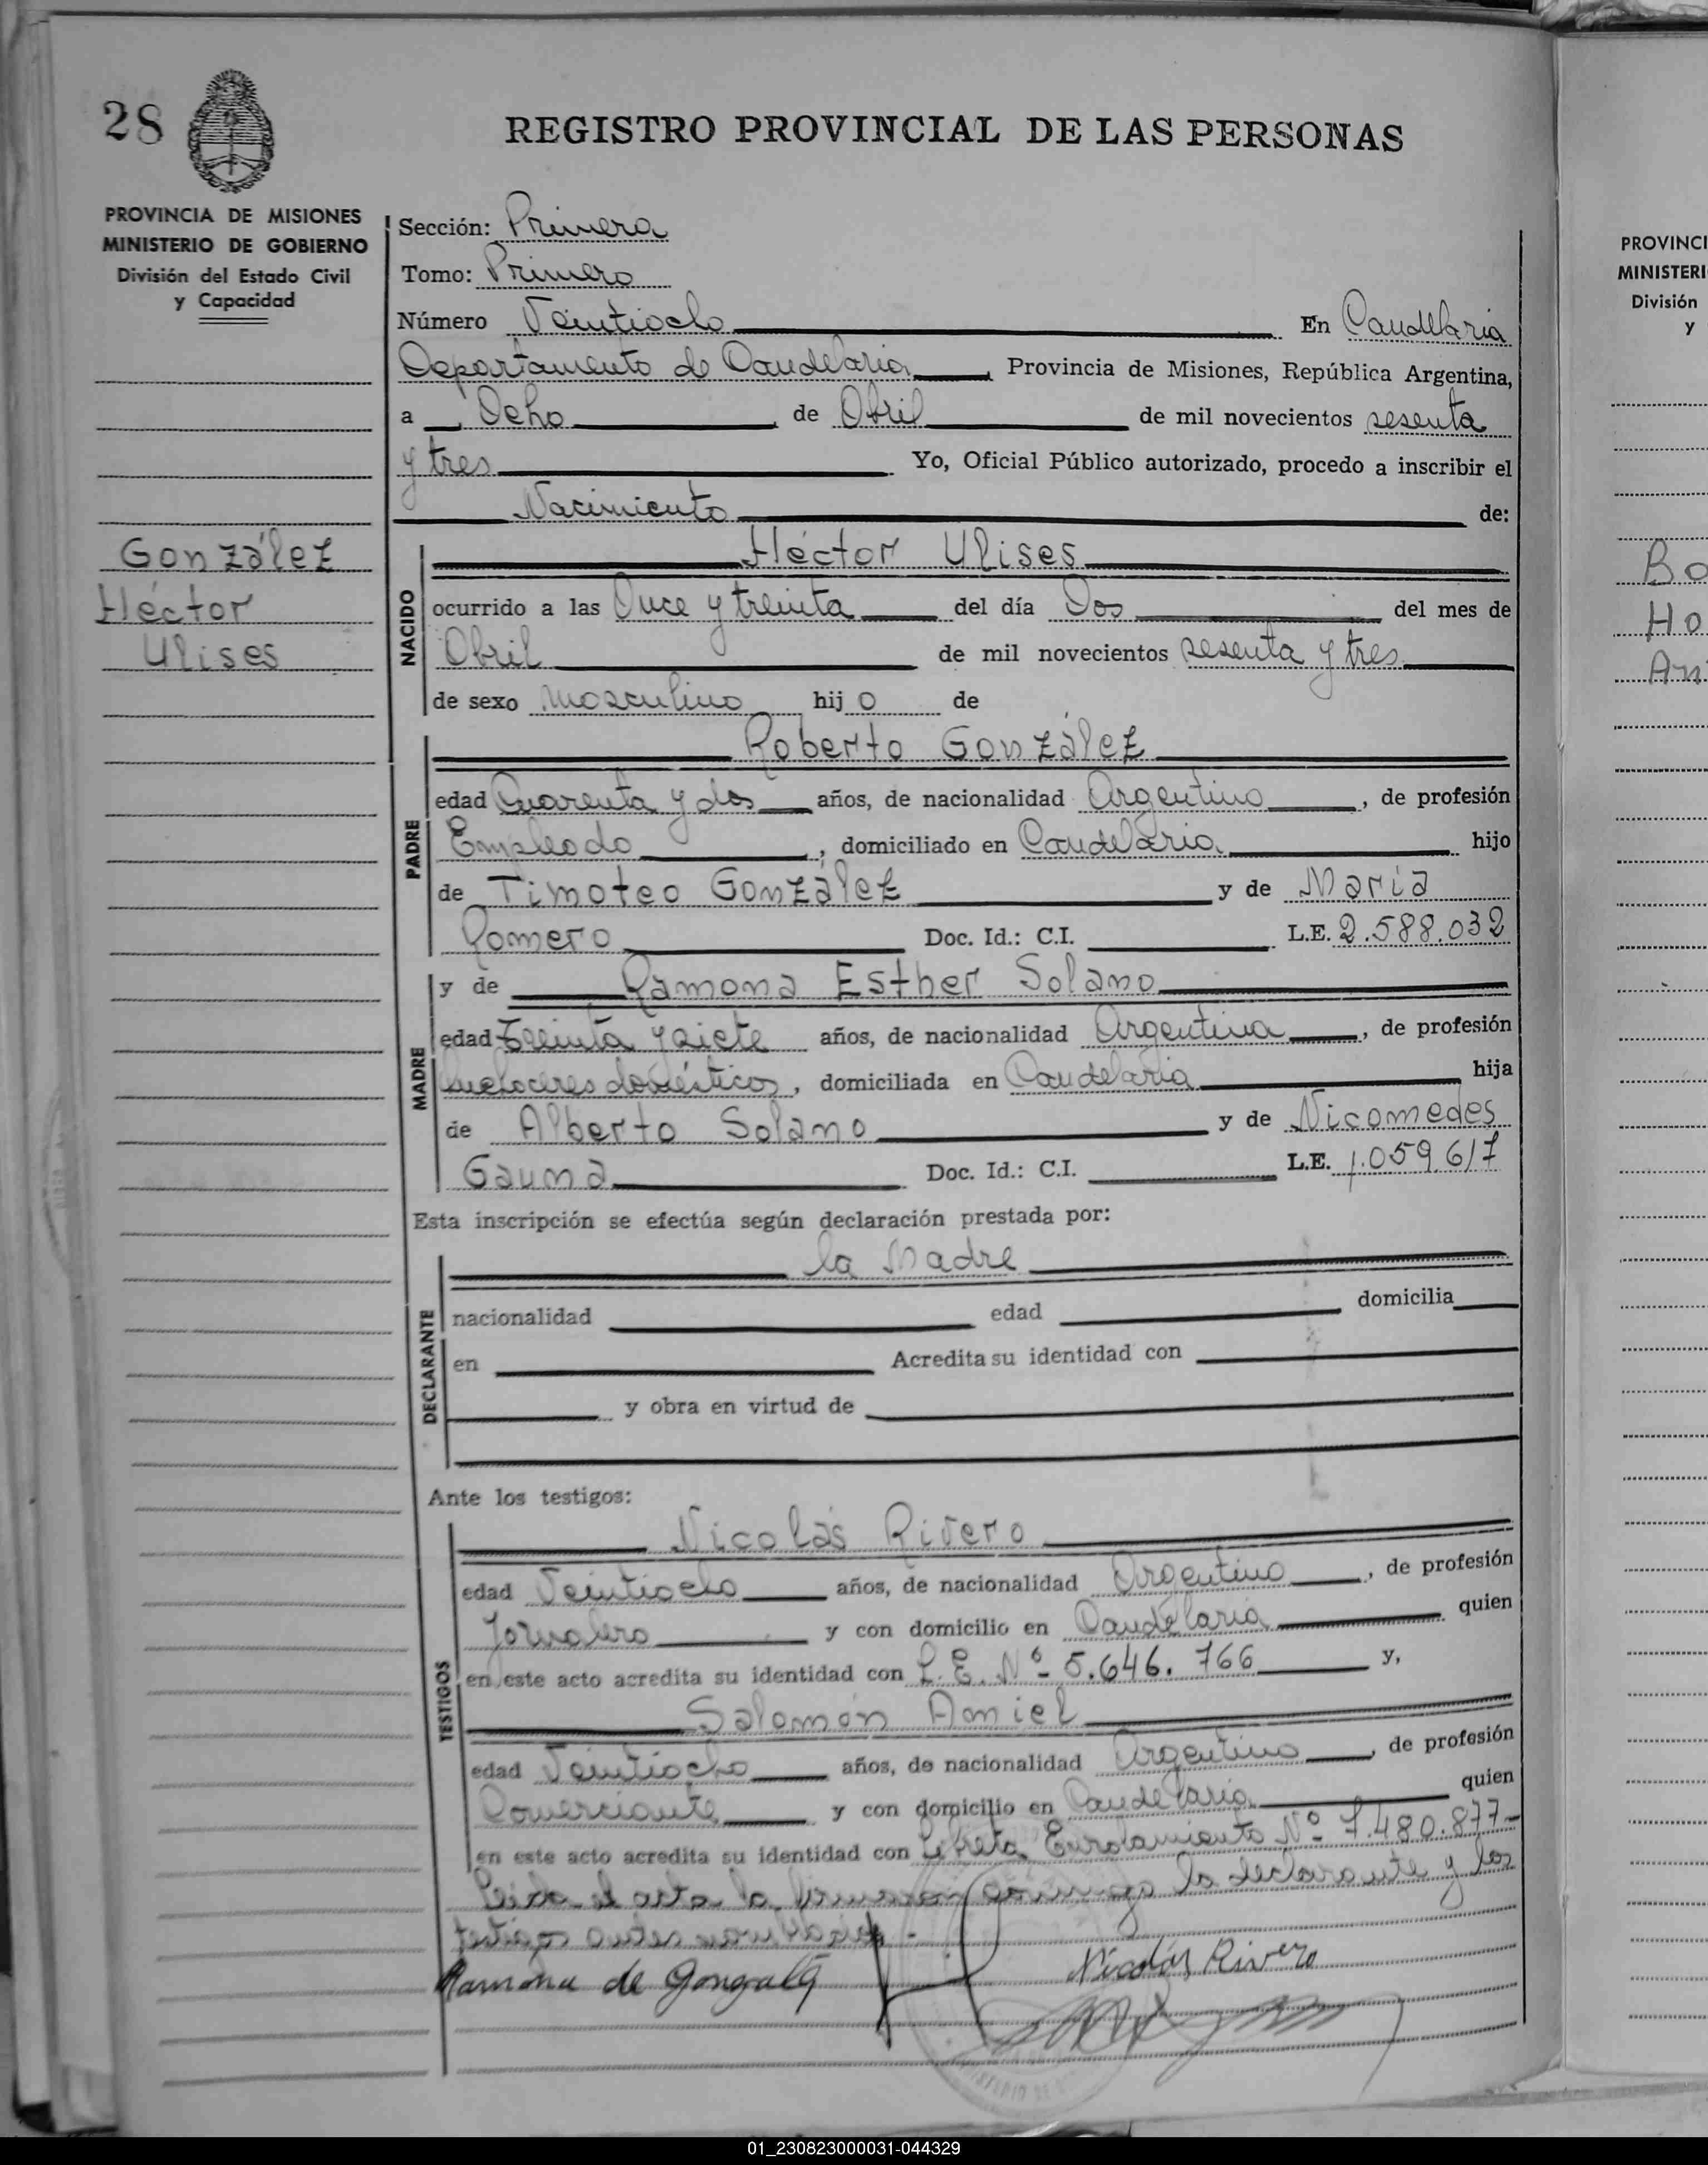 28
REGISTRO PROVINCIAL DE LAS PERSONAS
PROVINCIA DE MISIONES
MINISTERIO DE GOBIERNO
División del Estado Civil
y Capacidad
Sección: Primera
Tomo: Primero
Número Veintiocho En Candelaria
Departamento de Candelaria, Provincia de Misiones, República Argentina,
a Ocho de Abril de mil novecientos sesenta
y tres. Yo, Oficial Público autorizado, procedo a inscribir el
Nacimiento de:
González
Héctor
Ulises
NACIDO
Héctor Ulises
ocurrido a las Once y treinta del día Dos del mes de
Abril de mil novecientos sesenta y tres
de sexo masculino hijo de
PADRE
Roberto González
edad Cuarenta y dos años, de nacionalidad Argentino, de profesión
Empleado, domiciliado en Candelaria hijo
de Timoteo González y de María
Romero Doc. Id.: C.I. L.E. 2.588.032
MADRE
y de Ramona Esther Solano
edad Treinta y siete años, de nacionalidad Argentina, de profesión
quehaceres domésticos, domiciliada en Candelaria hija
de Alberto Solano y de Nicomedes
Gauna Doc. Id.: C.I. L.E. 1.059.617
Esta inscripción se efectúa según declaración prestada por:
DECLARANTE
la Madre
nacionalidad edad domicilia
en Acredita su identidad con
y obra en virtud de
Ante los testigos:
TESTIGOS
Nicolás Rivero
edad Veintiocho años, de nacionalidad Argentino, de profesión
Jornalero y con domicilio en Candelaria quien
en este acto acredita su identidad con L.E. Nº 5.646.766 y,
Salomón Amiel
edad Veintiocho años, de nacionalidad Argentino, de profesión
Comerciante y con domicilio en Candelaria quien
en este acto acredita su identidad con Libreta Enrolamiento Nº 7.480.877-
Leida el acta la firman conmigo la declarante y los
testigos antes
Ramona de Gonzalez
Nicolás Rivero
PROVINCI
MINISTERI
División
y
Bo
Ho
An
01_230823000031-044329